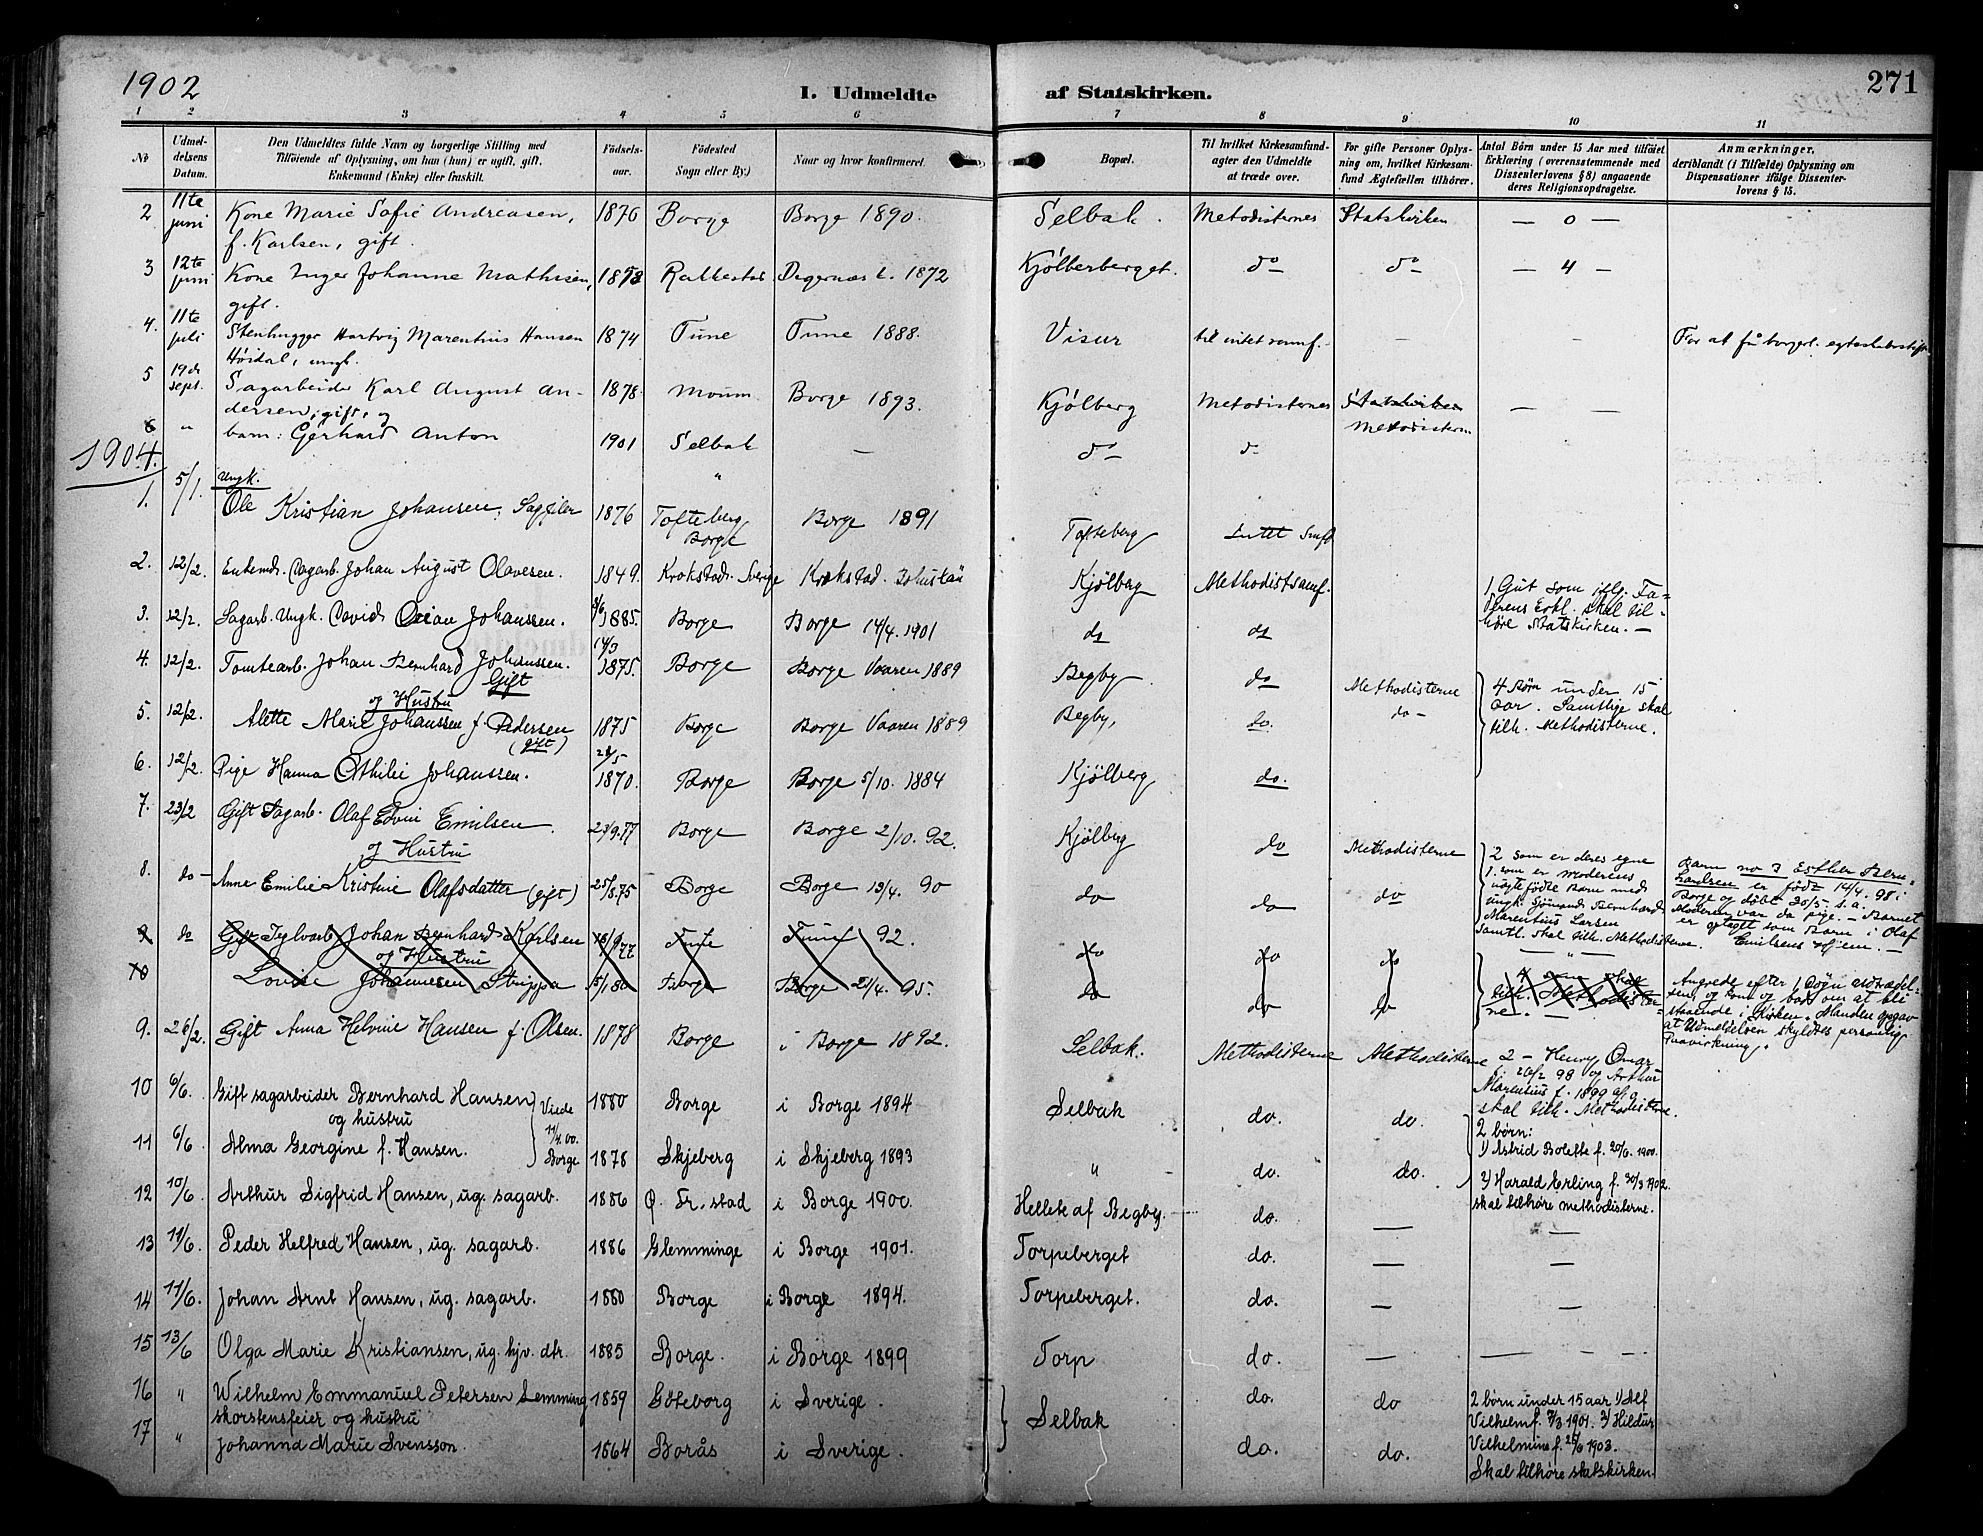 1902
I. Udmeldte af Statskirken.
271
1 2 3 4 5 6 7 8 9 10 11
No
Udmeldelsens Datum.
Den Udmeldtes fulde Navn og borgerlige Stilling med
Tilføiende af Oplysning, om han (hun) er ugift, gift.
Enkemand (Enke) eller fraskilt.
Fødselsaar.
Fødested
Sogn eller By.)
Naar og hvor konfirmeret.
Bopæl.
Til hvilket Kirkesamfund-
agter den Udmeldte
at træde over.
For gifte Personer Oplys-
ning om, hvilket Kirkesam-
fund Ægtefællen tilhører.
Antal Børn under 15 Aar med tilføiet
Erklæring (overensstemmende med
Dissenterlovens § 8) angaaende
deres Religionsopdragelse.
Anmærkninger,
deriblandt (i Tilfælde) Oplysning om
Dispensationer ifølge Dissenter-
lovens § 15.
2 11te juni Kone Marie Sofie Andreasen, 1876 Borge Borge 1890. Selbak. Metodisternes Statskirken — 0 —
f. Karlsen, gift.
3 12te juni Kone Inger Johanne Mathisen, Rakkestad Degernæs k. 1872 Kjølberberget. do do — 4 —
gift.
4. 11te juli Stenhugger Hartvig Marentius Hansen 1874 Tune Tune 1888. Visur til intet samf. — —
Høidal, ungk.
For at få borgerl. egteskabsstift
5 19de sept. Sagarbeider Karl August An- 1878. Moum Borge 1893. Kjølberg Metodisternes Statskirken — —
dersen, gift, og
Metodistern
6 " barn: Gerhard Anton 1901 Selbak — do d-
1904.
1. 5/1. Ungk.
Ole Kristian Johansen, Sagfiler 1876 Tofteberg Borge Borge 1891 Tofteberg Intet Smfd
2. 12/2. Enkemd. Sagarb. Johan August Olavesen. 1849. Krokstad. Sverige Krokstad. Bohuslän Kjölberg Methodistsamf.
1 Gut som iflg. Fa-
derens Erkl. skal til-
høre Statskirken. —
3. 12/2. Sagarb. Ungk. David Johanssen. 1885. Borge Borge 14/4. 1901 do do
4. 12/2. Tomtearb. Johan Bernhard Johanssen. 14/3 1875. Borge Borge Vaaren 1889 Begby. do Methodisterne
Gift
og Hustru
4 Børn under 15
aar. Samtlige skal
tilh. Methodisterne.
5. 12/2. Alette Marie Johanssen f. Pedersen 1875 Borge Borge Vaaren 1889 Begby, do. do -
(gift)
6. 12/2. Pige Hanna Othilie Johanssen. 1870. Borge Borge 5/10. 1884 Kjölberg do.
7. 23/2 Gift Sagarb. Olaf Edvin Emilsen. Borge Borge 2/10. 92. Kjölberg do Methodisterne
og Hustru
8. do - Anne Emilie Kristine Olafsdatter (gift) 25/8.75 Borge Borge 13/4. 90 do do do
2 som er deres egne
1. som er moderens
uægte fødte Barn med
ungk. Sjömand Bernhard
Marentius Larsen
Samtl. skal tilh. Methodisterne.
Barn no 3 Esther Bern-
hardsen er født 14/4. 98 i
Borge og døbt 30/5 s.a.
Moderen var da pige. — Barnet
er optaget som Barn i Olaf
Emilsens Hjem. —
9 do Gift Teglvarb. Johan Bernhard Karlsen Tune Tune 92. do do do
og Hustru
10 Lovise Johannesen Strippa 5/1.80 Borge Borge 21/4. 95. do do do
skal
tilh. Methodister-
ne.
Angrede efter 1 Døgn Udtrædel-
sen, og kom og bad om at bli
staaende i Kirken. Manden opgav
at Udmeldelsen skyldtes personlig
Paavirkning.
9. 26/2. Gift Anna Helvine Hansen f. Olsen. 1878 Borge i Borge 1892. Selbak. Methodisterne Methodisterne
2 - Henry Omar
f. 20/2 98 og Arthur
Marentius f. 1899
skal tilh. Methodisterne.
10 6/6. Gift sagarbeider Bernhard Hansen 1880 Borge i Borge 1894 Selbak do. do.
og hustru
Viede
11/4.00.
Borge
11 6/6 Alma Georgine f. Hansen. 1878 Skjeberg i Skjeberg 1893 " do. do.
2 børn:
1) Astrid Bolette f. 20/6. 1900.
2) Harald Erling f. 30/3 1902.
skal tilhøre methodisterne.
12 10/6. Arthur Sigfrid Hansen, ug. sagarb. 1886 Ø. Fr. stad i Borge 1900. Hellek af Begby. do. — —
13 11/6. Peder Helfred Hansen, ug. sagarb. 1886 Glemminge i Borge 1901. Torpeberget do. — —
14 11/6. Johan Arnt Hansen, ug. sagarb. 1880 Borge i Borge 1894. Torpeberget. do. — —
15 13/6 Olga Marie Kristiansen, ug. hjv. dtr. 1885 Borge. i Borge 1899 Torp do. — —
16 " Wilhelm Emmanuel Petersen Lemming 1859 Göteborg i Sverige. Selbak do. do
skorstensfeier og hustru
17 " Johanna Marie Svensson. 1864 Borås i Sverige. do. do.
2 børn under 15 aar 1) Alf
Vilhelm f. 7/3 1901. 2) Hildur
Vilhelmine f. 25/6 1903.
Skal tilhøre statskirken.